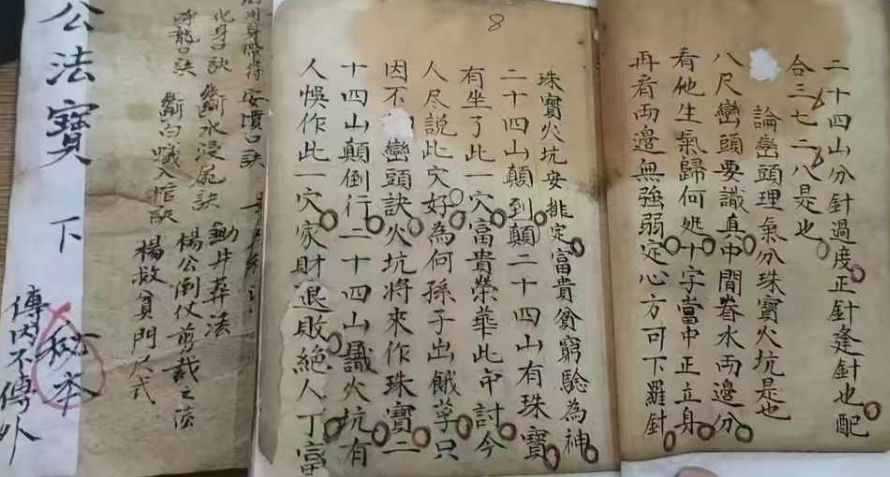 二十四山分針過度正針逢針也配
合三七二八是也
論巒頭理氣分珠寶火坑是也
八尺巒頭要識真中間眷水兩邊分
看他生氣歸何处十字當中正立身
再看兩邊無強弱定心方可下羅針
珠寶火坑安排定富貴貧窮驗為神
二十四山顛到顛二十四山有珠寶
有坐了此一穴富貴榮華此中討今
人尽說此穴好為何孫子出餓莩只
因不巒頭訣火坑將來作珠寶二
十四山顛倒行二十四山識火坑有
人悞作此一穴家財退敗絕人丁富
安墳口訣
化身口訣 斷水浸屍訣 動井葬法
呼龍口訣 斷白蟻入棺訣 楊公倒仗剪裁之法
楊救貧門尺式
公法寶 下
秘本
傳内不傳外
8